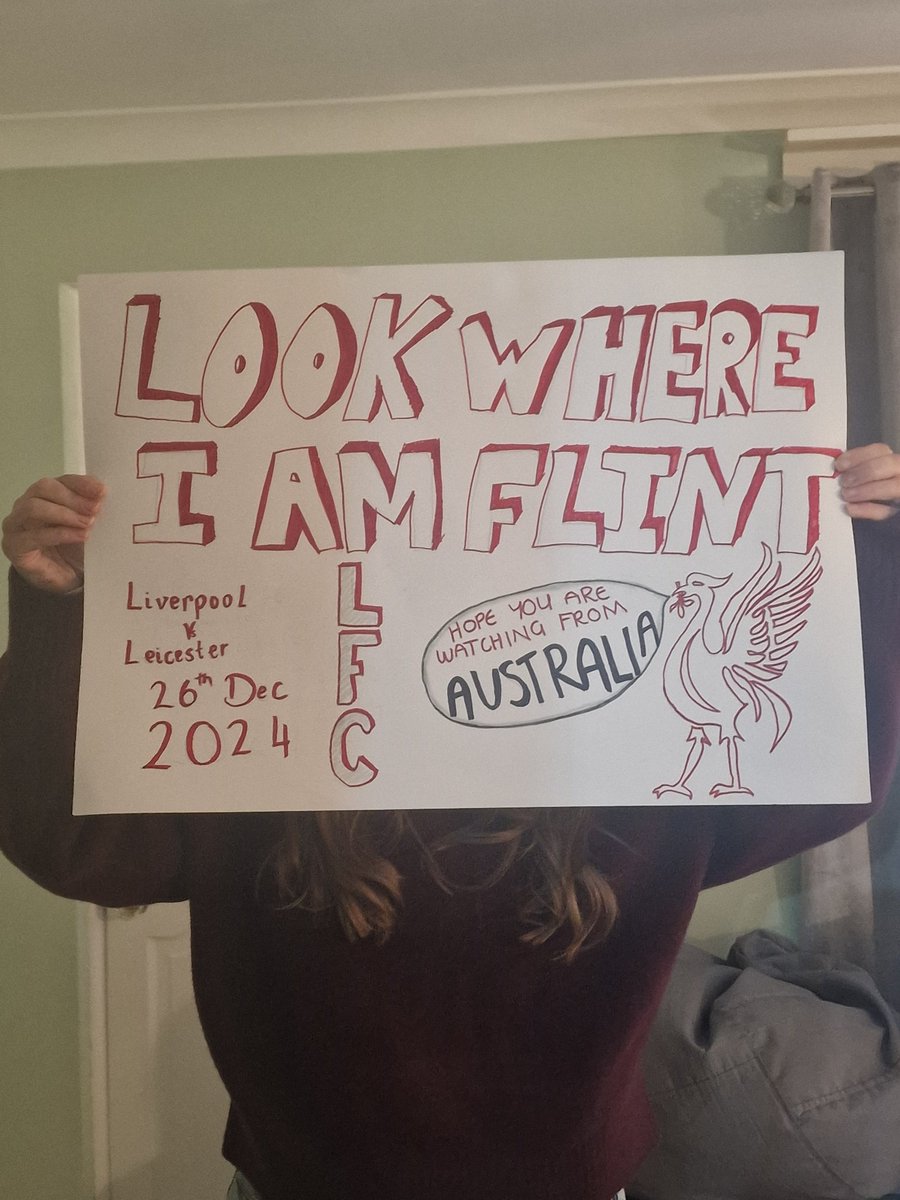 LOOK WHERE
I AM FLINT
Liverpool
vs
Leicester
26th Dec
2024
LFC
HOPE YOU ARE
WATCHING FROM
AUSTRALIA